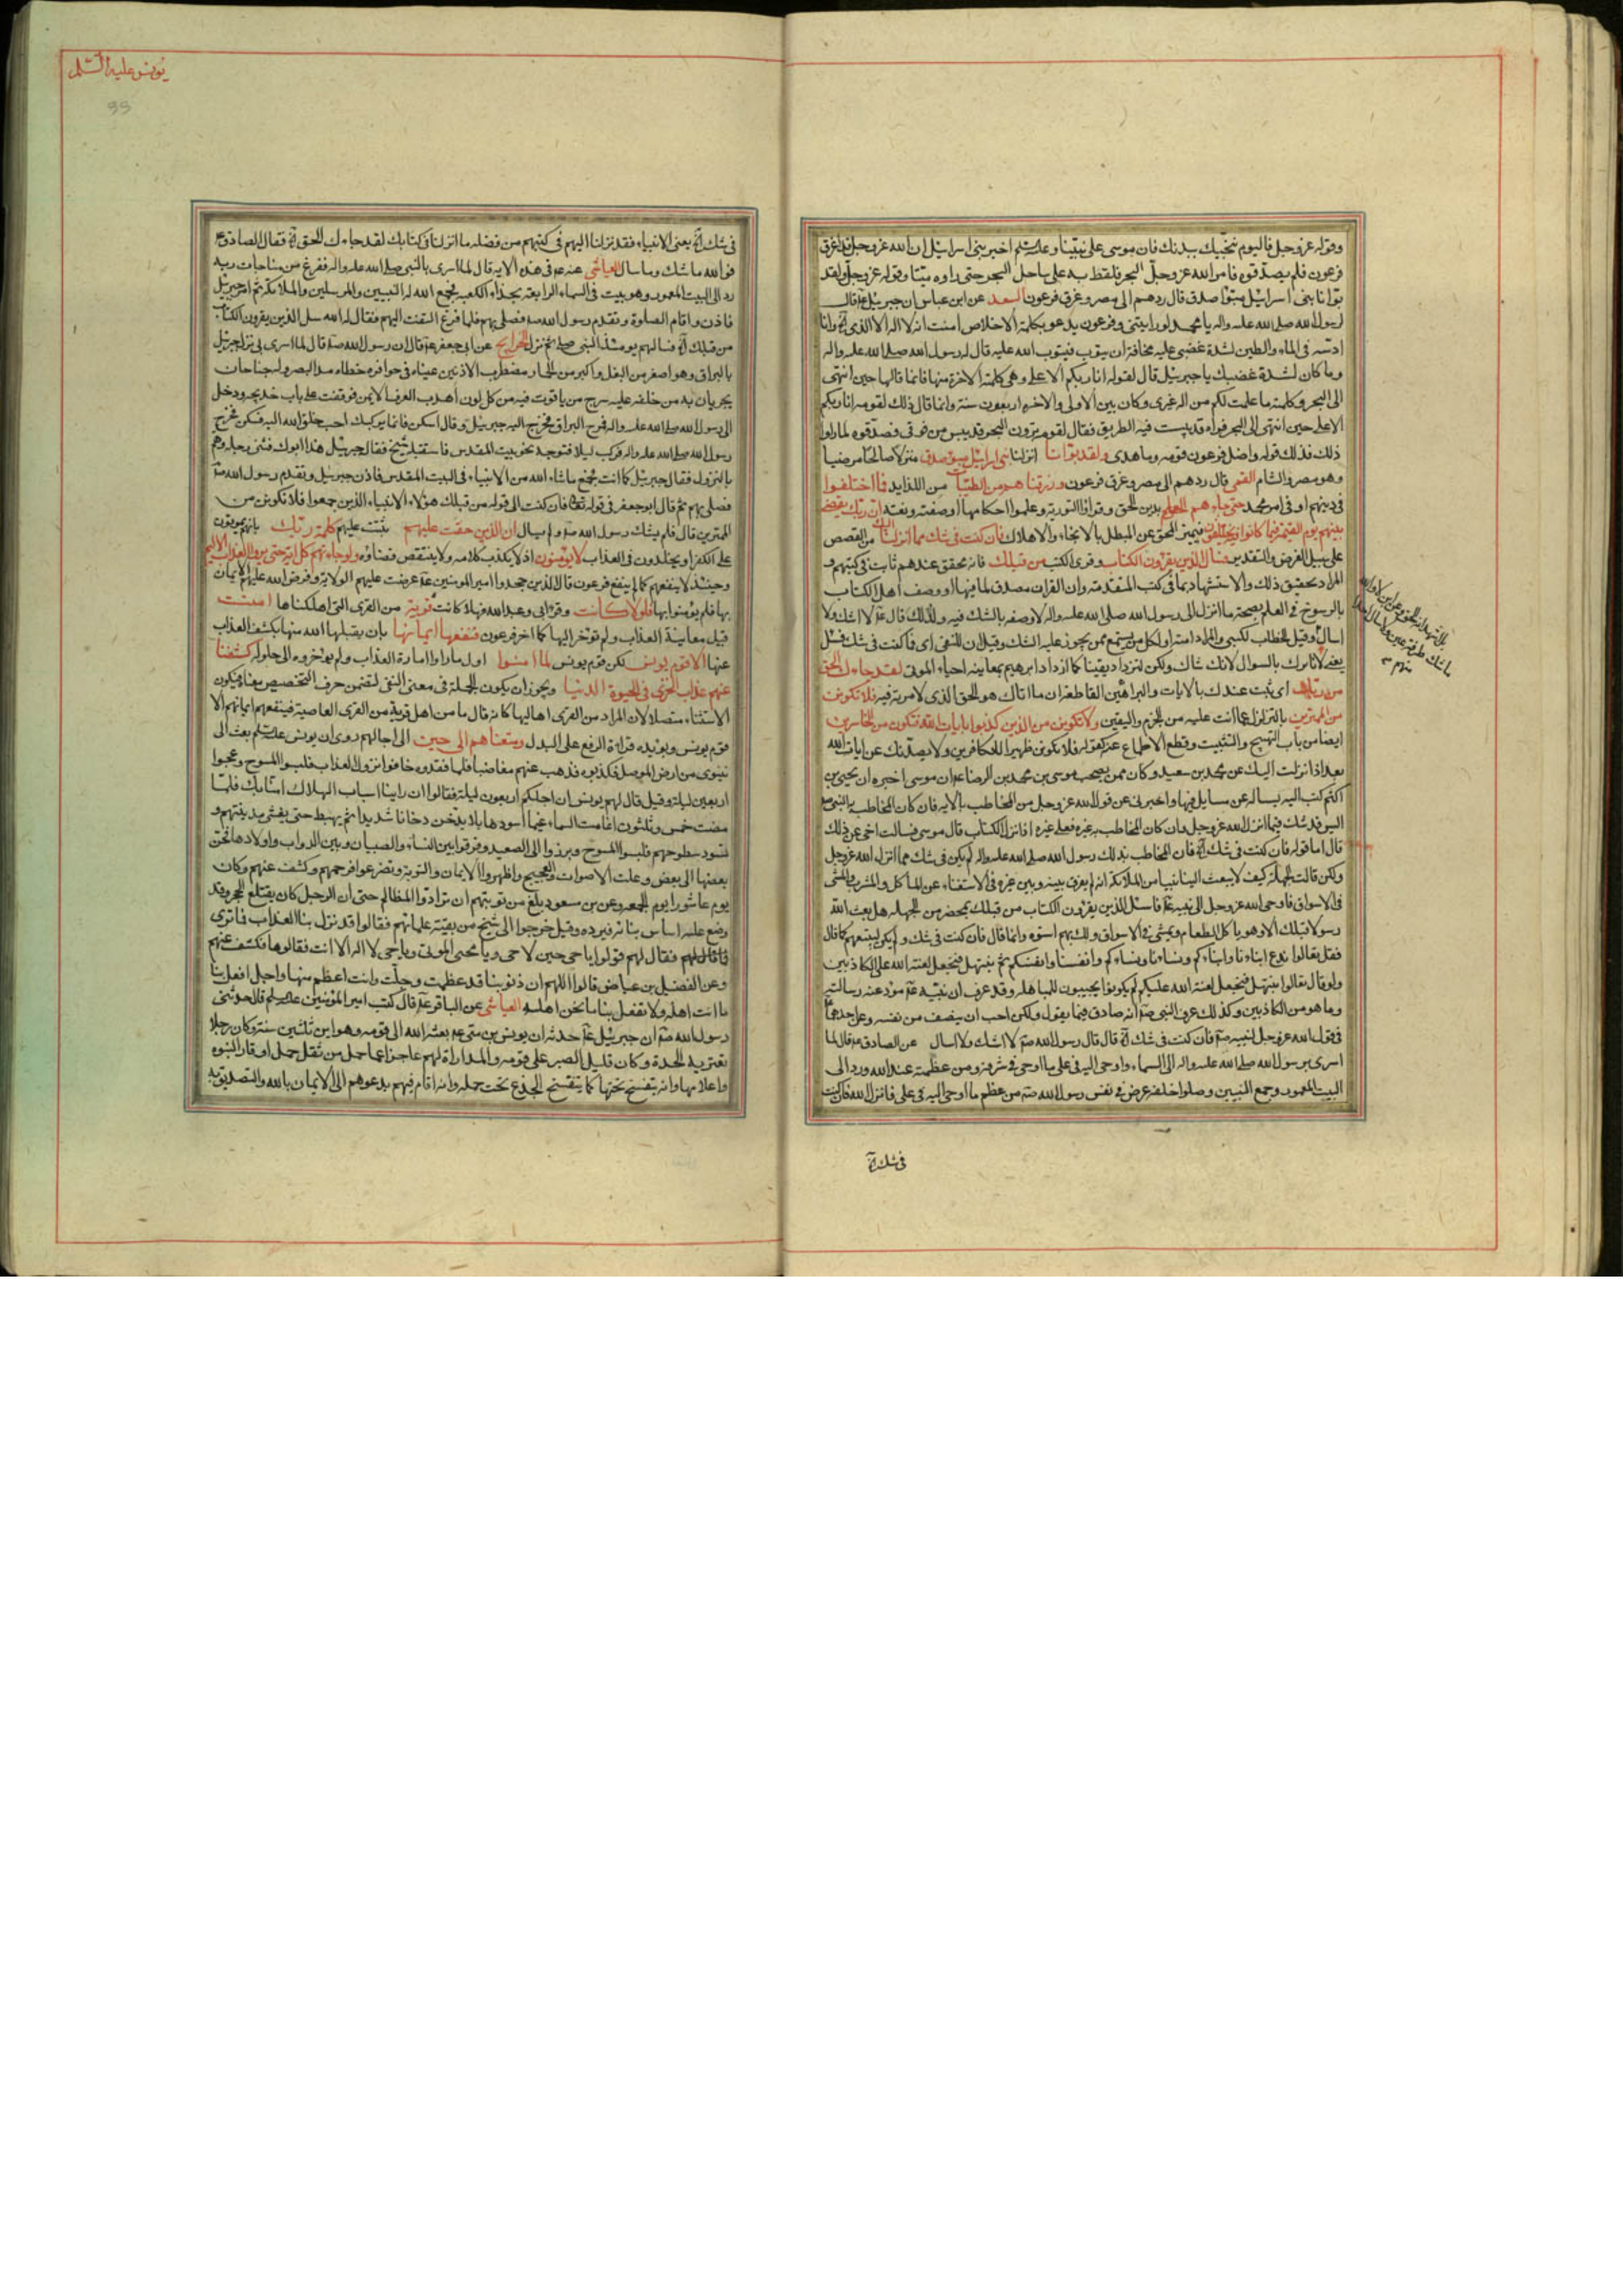 وقوله عز وجل فاليوم ننجيك ببدنك فان موسى على نبينا وعليه السلم اخبر بنى اسرائيل ان الله عز وجل قد اغرق
فرعون فلم يصدقوه فامر الله عز وجل البحر فلفظ به على ساحل البحر حتى راوه ميتا وقوله عز وجل ولقد
بوانا بنى اسرائيل مبوا صدق قال ردهم الى مصر وغرق فرعون السعد عن ابن عباس ان جبرئيل قال
لرسول الله صلى الله عليه واله يا محمد لو رايتنى وفرعون يدعو بكلمة الاخلاص امنت انه لا اله الا الذى وانا
ادسه فى الماء والطين لشدة غضبى عليه مخافة ان يتوب فيتوب الله عليه قال له رسول الله صلى الله عليه واله
وما كان لشدة غضبك يا جبرئيل قال لقوله انا ربكم الاعلى وهى كلمته الاخرة منها فانما قالها حين انتهى
الى البحر وكلمته ما علمت لكم من اله غيرى وكان بين الاولى والاخرة اربعون سنة وانما قال ذلك لقومه انا ربكم
الاعلى حين انتهى الى البحر فراه قد يبست فيه الطريق فقال لقومه ترون البحر قد يبس من فرقى فصدقوه لما راوا
ذلك فذلك قوله واضل فرعون قومه وما هدى ولقد بوانا انزلنا بنى اسرائيل مبوا صدق منزلا صالحا مرضيا
وهو مصر والشام القمى قال ردهم الى مصر وغرق فرعون ورزقناهم من الطيبات من اللذايد فما اختلفوا
فى دينهم او فى امر محمد حتى جاءهم العلم بدين الحق وقراوا التورية وعلموا احكامها او صفته ونعته ان ربك يقضى
بينهم يوم القيمة فيما كانوا فيه يختلفون فيميز المحق عن المبطل بالانجاء والاهلاك فان كنت فى شك مما انزلنا اليك من القصص
على سبيل الفرض والتقدير فسال الذين يقرؤن الكتاب وقرئ الكتب من قبلك فانه محقق عندهم ثابت فى كتبهم و
المراد تحقيق ذلك والاستشهاد بما فى كتب المتقدمة وان القران مصدق لما فيها او وصف اهل الكتاب
بالرسوخ فى العلم بصحة ما انزل الى رسول الله صلى الله عليه واله لا وصفه بالشك فيه ولذلك قال لا اشك ولا
اسال وقيل الخطاب للنبى والمراد امته او لكل من يسمع ممن يجوز عليه الشك وقيل ان للنفى اى فما كنت فى شك فسل
يعنى لا نامرك بالسوال لانك شاك ولكن لتزداد يقينا كما ازداد ابرهيم بمعاينة احياء الموتى لقد جاءك الحق
من ربك اى ثبت عندك بالايات والبراهين القاطعة ان ما اتاك هو الحق الذى لا مرية فيه فلا تكونن
من الممترين بالتزلزل عما انت عليه من الجزم واليقين ولا تكونن من الذين كذبوا بايات الله فتكون من الخاسرين
ايضا من باب التهييج والتثبيت وقطع الاطماع عنه كقوله فلا تكونن ظهيرا للكافرين ولا يصدنك عن ايات الله
بعد اذ انزلت اليك عن محمد بن سعيد وكان ممن يصحب موسى بن محمد بن الرضا ان موسى اخبره ان يحيى بن
اكثم كتب اليه يساله عن مسايل فيها واخبرنى عن قول الله عز وجل من المخاطب بالاية فان كان المخاطب به النبى
اليس قد شك فيما انزل الله عز وجل وان كان المخاطب به غيره فعلى غيره اذا انزل الكتاب قال موسى فسالت اخى عن ذلك
قال اما قوله فان كنت فى شك فان المخاطب بذلك رسول الله صلى الله عليه واله لم يكن فى شك مما انزل الله عز وجل
ولكن قالت الجهلة كيف لا يبعث الينا نبيا من الملائكة انه لم يفرق بينه وبين غيره فى الاستغناء عن الماكل والمشرب والمشى
فى الاسواق فاوحى الله عز وجل الى نبيه فاسئل الذين يقرؤن الكتاب من قبلك بمحضر من الجهلة هل بعث الله
رسولا قبلك الا وهو ياكل الطعام ويمشى فى الاسواق ولك بهم اسوه وانما قال فان كنت فى شك ولم يكن ليتبعهم كما قال
فقل تعالوا ندع ابناءنا وابناءكم ونساءنا ونساءكم وانفسنا وانفسكم ثم نبتهل فنجعل لعنة الله على الكاذبين
ولو قال تعالوا نبتهل فنجعل لعنة الله عليكم لم يكونوا يجيبون للمباهلة وقد عرف ان نبيه مؤد عنه رسالته
وما هو من الكاذبين وكذلك عرف النبى انه صادق فيما يقول ولكن احب ان ينصف من نفسه وعن احدهما
فى قول الله عز وجل لنبيه فان كنت فى شك قال قال رسول الله لا اشك ولا اسال عن الصادق قال لما
اسرى برسول الله صلى الله عليه واله الى السماء واوحى اليه فى على ما اوحى فى شرفه ومن عظمته عند الله ورد الى
البيت المعمور وجمع النبيين وصلوا خلفه عرض فى نفس رسول الله من عظم ما اوحى اليه فى على فانزل الله فان كنت
فى شك
يونس عليه السلم
99
فى شك يعنى الانبياء فقد نزلنا اليهم فى كتبهم من فضله ما انزلنا فى كتابك لقد جاءك الحق فقال الصادق
فوالله ما شك وما سال العياشى عنه فى هذه الاية قال لما اسرى بالنبى صلى الله عليه واله ففرغ من مناجات ربه
رد الى البيت المعمور وهو بيت فى السماء الرابعة بحذاء الكعبة فجمع الله له النبيين والمرسلين والملائكة ثم امر جبرئيل
فاذن واقام الصلوة وتقدم رسول الله فصلى بهم فلما فرغ التفت اليهم فقال له الله سل الذين يقرؤن الكتاب
من قبلك فسالهم يومئذ النبى ثم نزل الخرايج عن ابى جعفر قال ان رسول الله قال لما اسرى بى نزل جبرئيل
بالبراق وهو اصغر من البغل واكبر من الحمار مضطرب الاذنين عيناه فى حوافره خطاه مد البصر وله جناحان
يجريان به من خلفه عليه سرج من ياقوت فيه من كل لون اهدب العرف الايمن فوقفت على باب خديجة ودخل
الى رسول الله صلى الله عليه واله فمرح البراق فخرج اليه جبرئيل وقال اسكن فانما يركبك احب خلق الله اليه فسكن فخرج
رسول الله صلى الله عليه واله فركب ليلا فتوجه نحو بيت المقدس فاستقبله شيخ فقال جبرئيل هذا ابوك فثنى رجله وهم
بالنزول فقال جبرئيل كما انت فجمع ماشاء الله من الانبياء فى البيت المقدس فاذن جبرئيل وتقدم رسول الله
فصلى بهم ثم قال ابو جعفر فى قوله فان كنت الى قوله من قبلك هؤلاء الانبياء الذين جمعوا فلا تكونن من
الممترين قال فلم يشك رسول الله ولم يسال ان الذين حقت عليهم ثبتت عليهم كلمة ربك بانهم يموتون
على الكفر او يخلدون فى العذاب لا يؤمنون اذ لا يكذب كلامه ولا ينتقض قضاؤه ولو جاءتهم كل اية حتى يروا العذاب الاليم
وحينئذ لا ينفعهم كما لم ينفع فرعون قال الذين جحدوا امير المومنين عرضت عليهم الولاية وفرض الله عليهم الايمان
بها فلم يؤمنوا بها فلولا كانت وقرا ابى وعبد الله فهلا كانت قرية من القرى التى اهلكناها امنت
قبل معاينة العذاب ولم تؤخر اليها كما اخر فرعون فنفعها ايمانها بان يقبلها الله منها بكشف العذاب
عنها الا قوم يونس لكن قوم يونس لما امنوا اول ما راوا امارة العذاب ولم يؤخروه الى حلوله كشفنا
عنهم عذاب الخزى فى الحيوة الدنيا ويجوز ان يكون الجملة فى معنى النفى لتضمن حرف التخصيص معناه فيكون
الاستثناء متصلا لان المراد من القرى اهاليها كانه قال ما من اهل قرية من القرى العاصية فينفعهم ايمانهم الا
قوم يونس ويؤيده قراءة الرفع على البدل ومتعناهم الى حين الى اجالهم روى ان يونس بعث الى
نينوى من ارض الموصل فكذبوه فذهب عنهم مغاضبا فلما فقدوه خافوا نزول العذاب فلبسوا المسوح وعجوا
اربعين ليلة وقيل قال لهم يونس ان اجلكم اربعون ليلة فقالوا ان راينا اسباب الهلاك امنا بك فلما
مضت خمس وثلثون اغامت السماء غيما اسود هايلا يدخن دخانا شديدا ثم يهبط حتى يغشى مدينتهم و
تسود سطوحهم فلبسوا المسوح وبرزوا الى الصعيد وفرقوا بين النساء والصبيان وبين الدواب واولادها فحن
بعضها الى بعض وعلت الاصوات والعجيج واظهروا الايمان والتوبة وتضرعوا فرحمهم وكشف عنهم وكان
يوم عاشورا يوم الجمعة وعن بن مسعود بلغ من توبتهم ان ترادوا المظالم حتى ان الرجل كان يقتلع الحجر وقد
وضع عليه اساس بنائه فيرده وقيل خرجوا الى شيخ من بقية علمائهم فقالوا قد نزل بنا العذاب فما ترى
فقال لهم قولوا يا حى حين لا حى ويا محيى الموتى ويا حى لا اله الا انت فقالوها فكشف عنهم
وعن الفضيل بن عياض قالوا اللهم ان ذنوبنا قد عظمت وجلت وانت اعظم منها واجل افعل بنا
ما انت اهله ولا تفعل بنا ما نحن اهله العياشى عن الباقر قال كتب امير المؤمنين قال حدثنى
رسول الله ان جبرئيل حدثه ان يونس بن متى بعثه الله الى قومه وهو ابن ثلثين سنة وكان رجلا
يعتريه الحدة وكان قليل الصبر على قومه والمداراة لهم عاجزا عما حمل من ثقل حمل اوقار النبوه
واعلامها وانه يتفسخ تحتها كما يتفسخ الجذع تحت حمله وانه اقام فيهم يدعوهم الى الايمان بالله والتصديق به